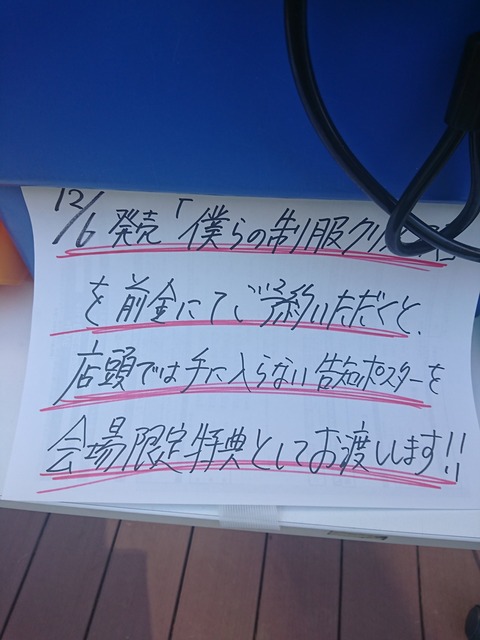 12/6 発売「僕らの制服クリ
を前金にてご予約いただくと、
店頭では手に入らない告知ポスターを
会場限定特典としてお渡しします!!